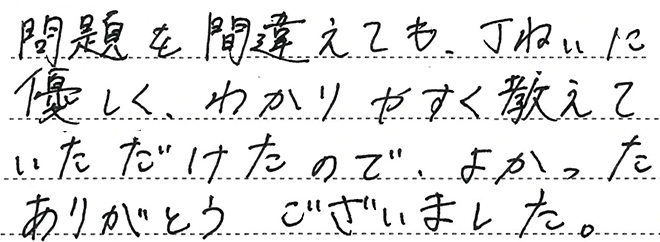 問題を間違えても、丁ねいに
優しく、わかりやすく教えて
いただけたので、よかった
ありがとうございました。